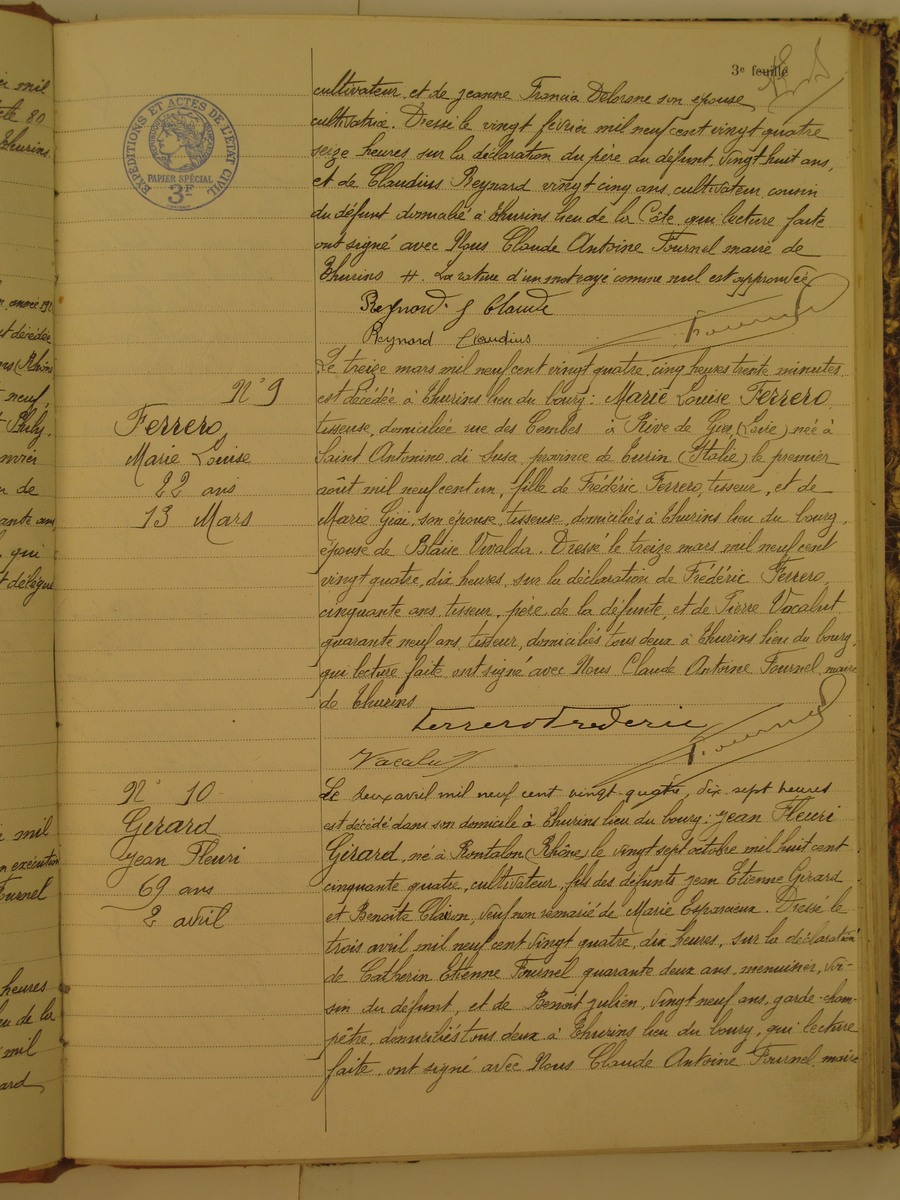 3e feuille
EXPEDITIONS ET ACTES DE L'ETAT CIVIL
PAPIER SPÉCIAL
3F
cultivateur et de Jeanne Francia Delorme son épouse
cultivatrice. Dressé le vingt février mil neuf cent vingt quatre
seize heures sur la déclaration du père du défunt, vingt huit ans,
et de Claudius Reynard vingt cinq ans cultivateur cousin
du défunt domicilié à Thurins lieu de la Côte qui lecture faite
ont signé avec Nous Claude Antoine Fournel maire de
Thurins #. La rature d'un mot rayé comme nul est approuvée
Reynard J Claude
Reynard Claudius
Fournel
N° 9
Ferrero
Marie Louise
22 ans
13 Mars
Le treize mars mil neuf cent vingt quatre, cinq heures trente minutes
est décédée à Thurins lieu du bourg: Marie Louise Ferrero,
tisseuse, domiciliée rue des Combes à Rive de Gier (Loire) née à
Saint Antonino di Susa province de Turin (Italie) le premier
août mil neuf cent un, fille de Frédéric Ferrero, tisseur, et de
Marie Giai, son épouse, tisseuse, domiciliés à Thurins lieu du bourg,
épouse de Blaise Vivalda. Dressé le treize mars mil neuf cent
vingt quatre, dix heures, sur la déclaration de Frédéric Ferrero,
cinquante ans, tisseur, père de la défunte, et de Pierre Vacalut
quarante neuf ans, tisseur, domiciliés tous deux à Thurins lieu du bourg,
qui lecture faite ont signé avec Nous Claude Antoine Fournel, maire
de Thurins
Ferrero Frederic
Fournel
N° 10
Gérard
Jean Fleuri
69 ans
2 avril
Le deux avril mil neuf cent vingt quatre, dix sept heures
est décédé dans son domicile à Thurins lieu du bourg: Jean Fleuri
Gérard, né à Rontalon (Rhône) le vingt sept octobre mil huit cent
cinquante quatre, cultivateur, fils des défunts Jean Etienne Gérard
et Benoîte Clairon, veuf non remarié de Marie Esparcieux. Dressé le
trois avril mil neuf cent vingt quatre, dix heures, sur la déclaration
de Catherin Etienne Fournel quarante deux ans, menuisier, voi-
sin du défunt, et de Benoît Julien, vingt neuf ans, garde-cham-
pêtre, domiciliés tous deux à Thurins lieu du bourg, qui lecture
faite, ont signé avec Nous Claude Antoine Fournel, maire